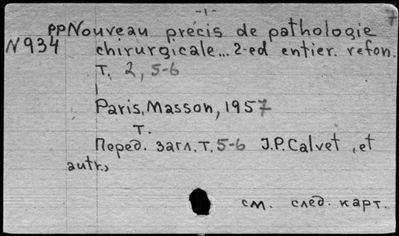 -1-
7
ррNouveau précis de pathologie
N934 chirurgicale... 2-ed entier. refon.
т. 2, 5-6
Paris, Masson, 1957
т.
Перед. загл. т. 5-6 J.P. Calvet, et
autr.,
см. след. карт.